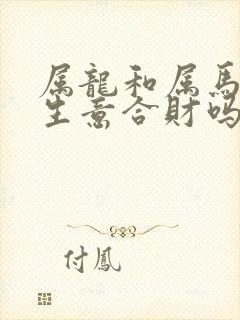 属龍和属馬
生意合財吗
付鳳